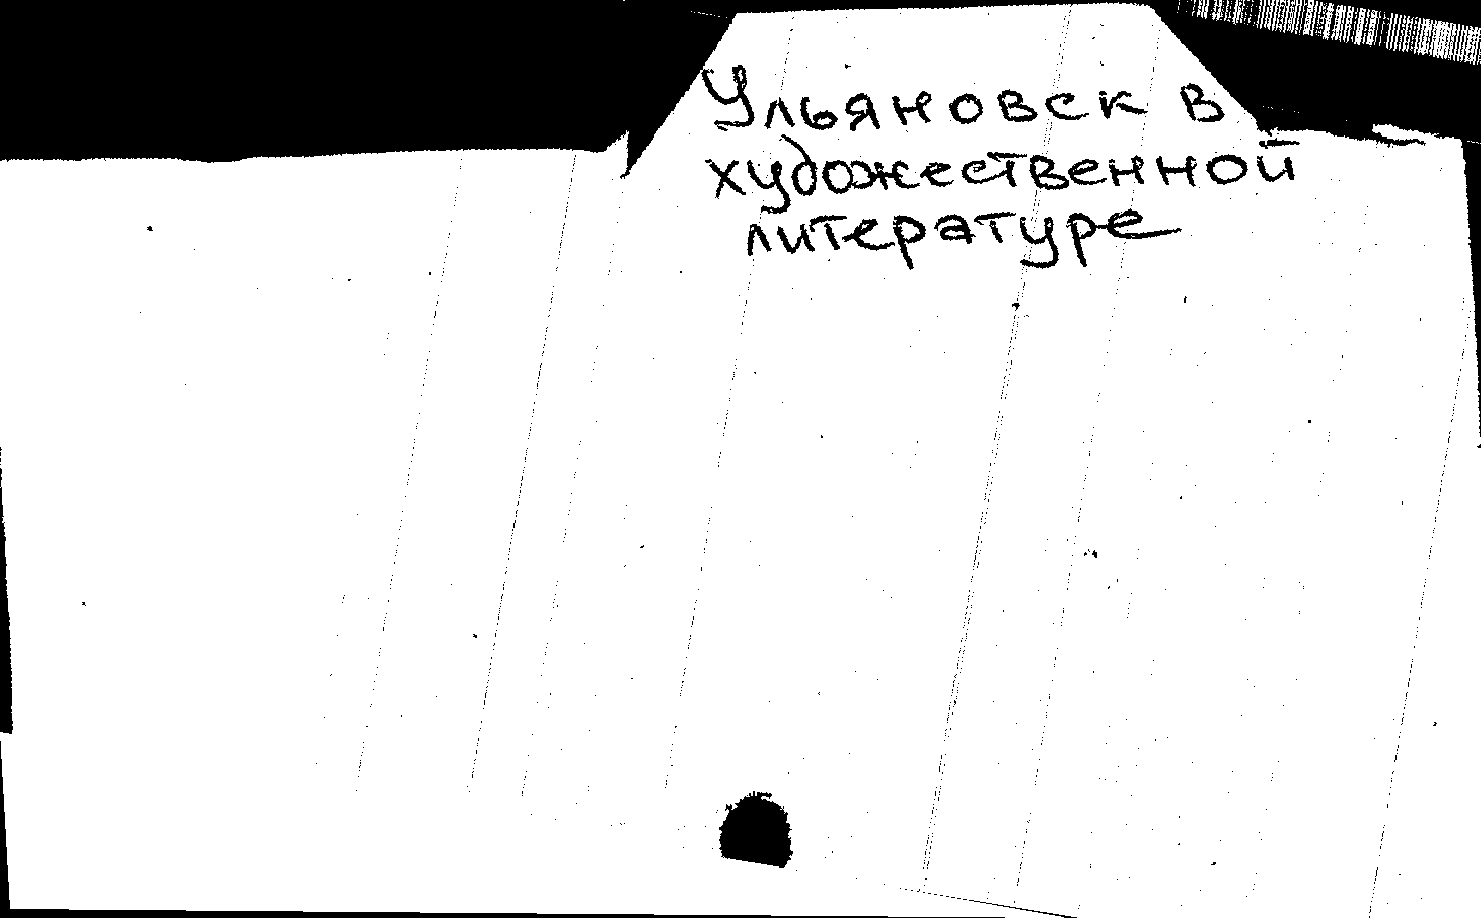 Ульяновск в
художественной
литературе